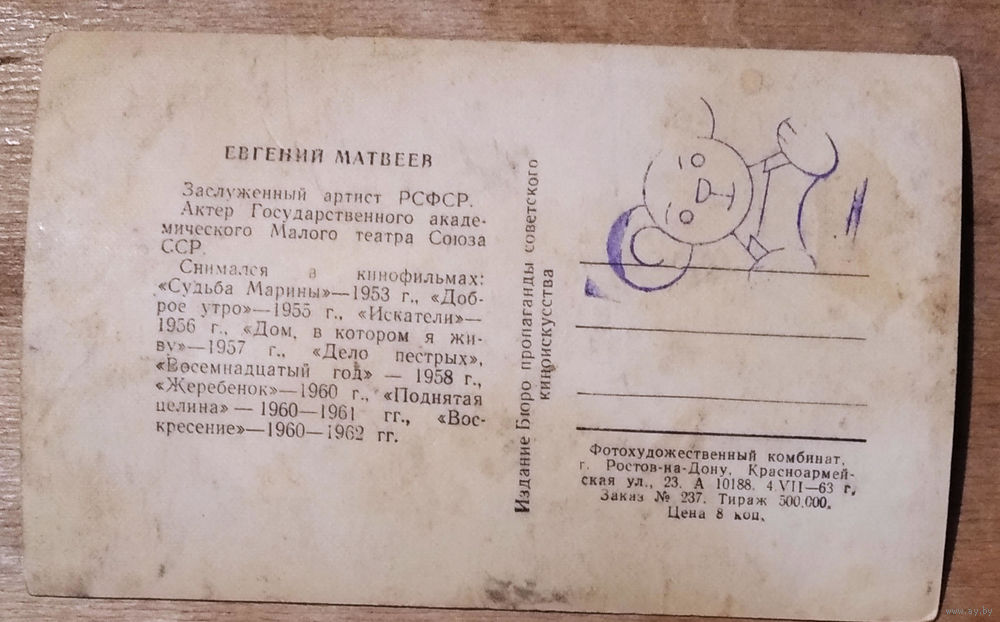 ЕВГЕНИЙ МАТВЕЕВ
Заслуженный артист РСФСР.
Актер Государственного акаде-
мического Малого театра Союза
ССР.
Снимался в кинофильмах:
«Судьба Марины»—1953 г., «Доб-
рое утро»—1955 г., «Искатели»—
1956 г., «Дом, в котором я жи-
ву»—1957 г., «Дело пестрых»,
«Восемнадцатый год» — 1958 г.,
«Жеребенок»—1960 г., «Поднятая
целина» — 1960—1961 гг., «Вос-
кресение»—1960—1962 гг.
Издание Бюро пропаганды советского
киноискусства
Фотохудожественный комбинат,
г. Ростов-на-Дону, Красноармей-
ская ул., 23. А 10188. 4.VII—63 г.
Заказ № 237. Тираж 500.000.
Цена 8 коп.
www.ay.by